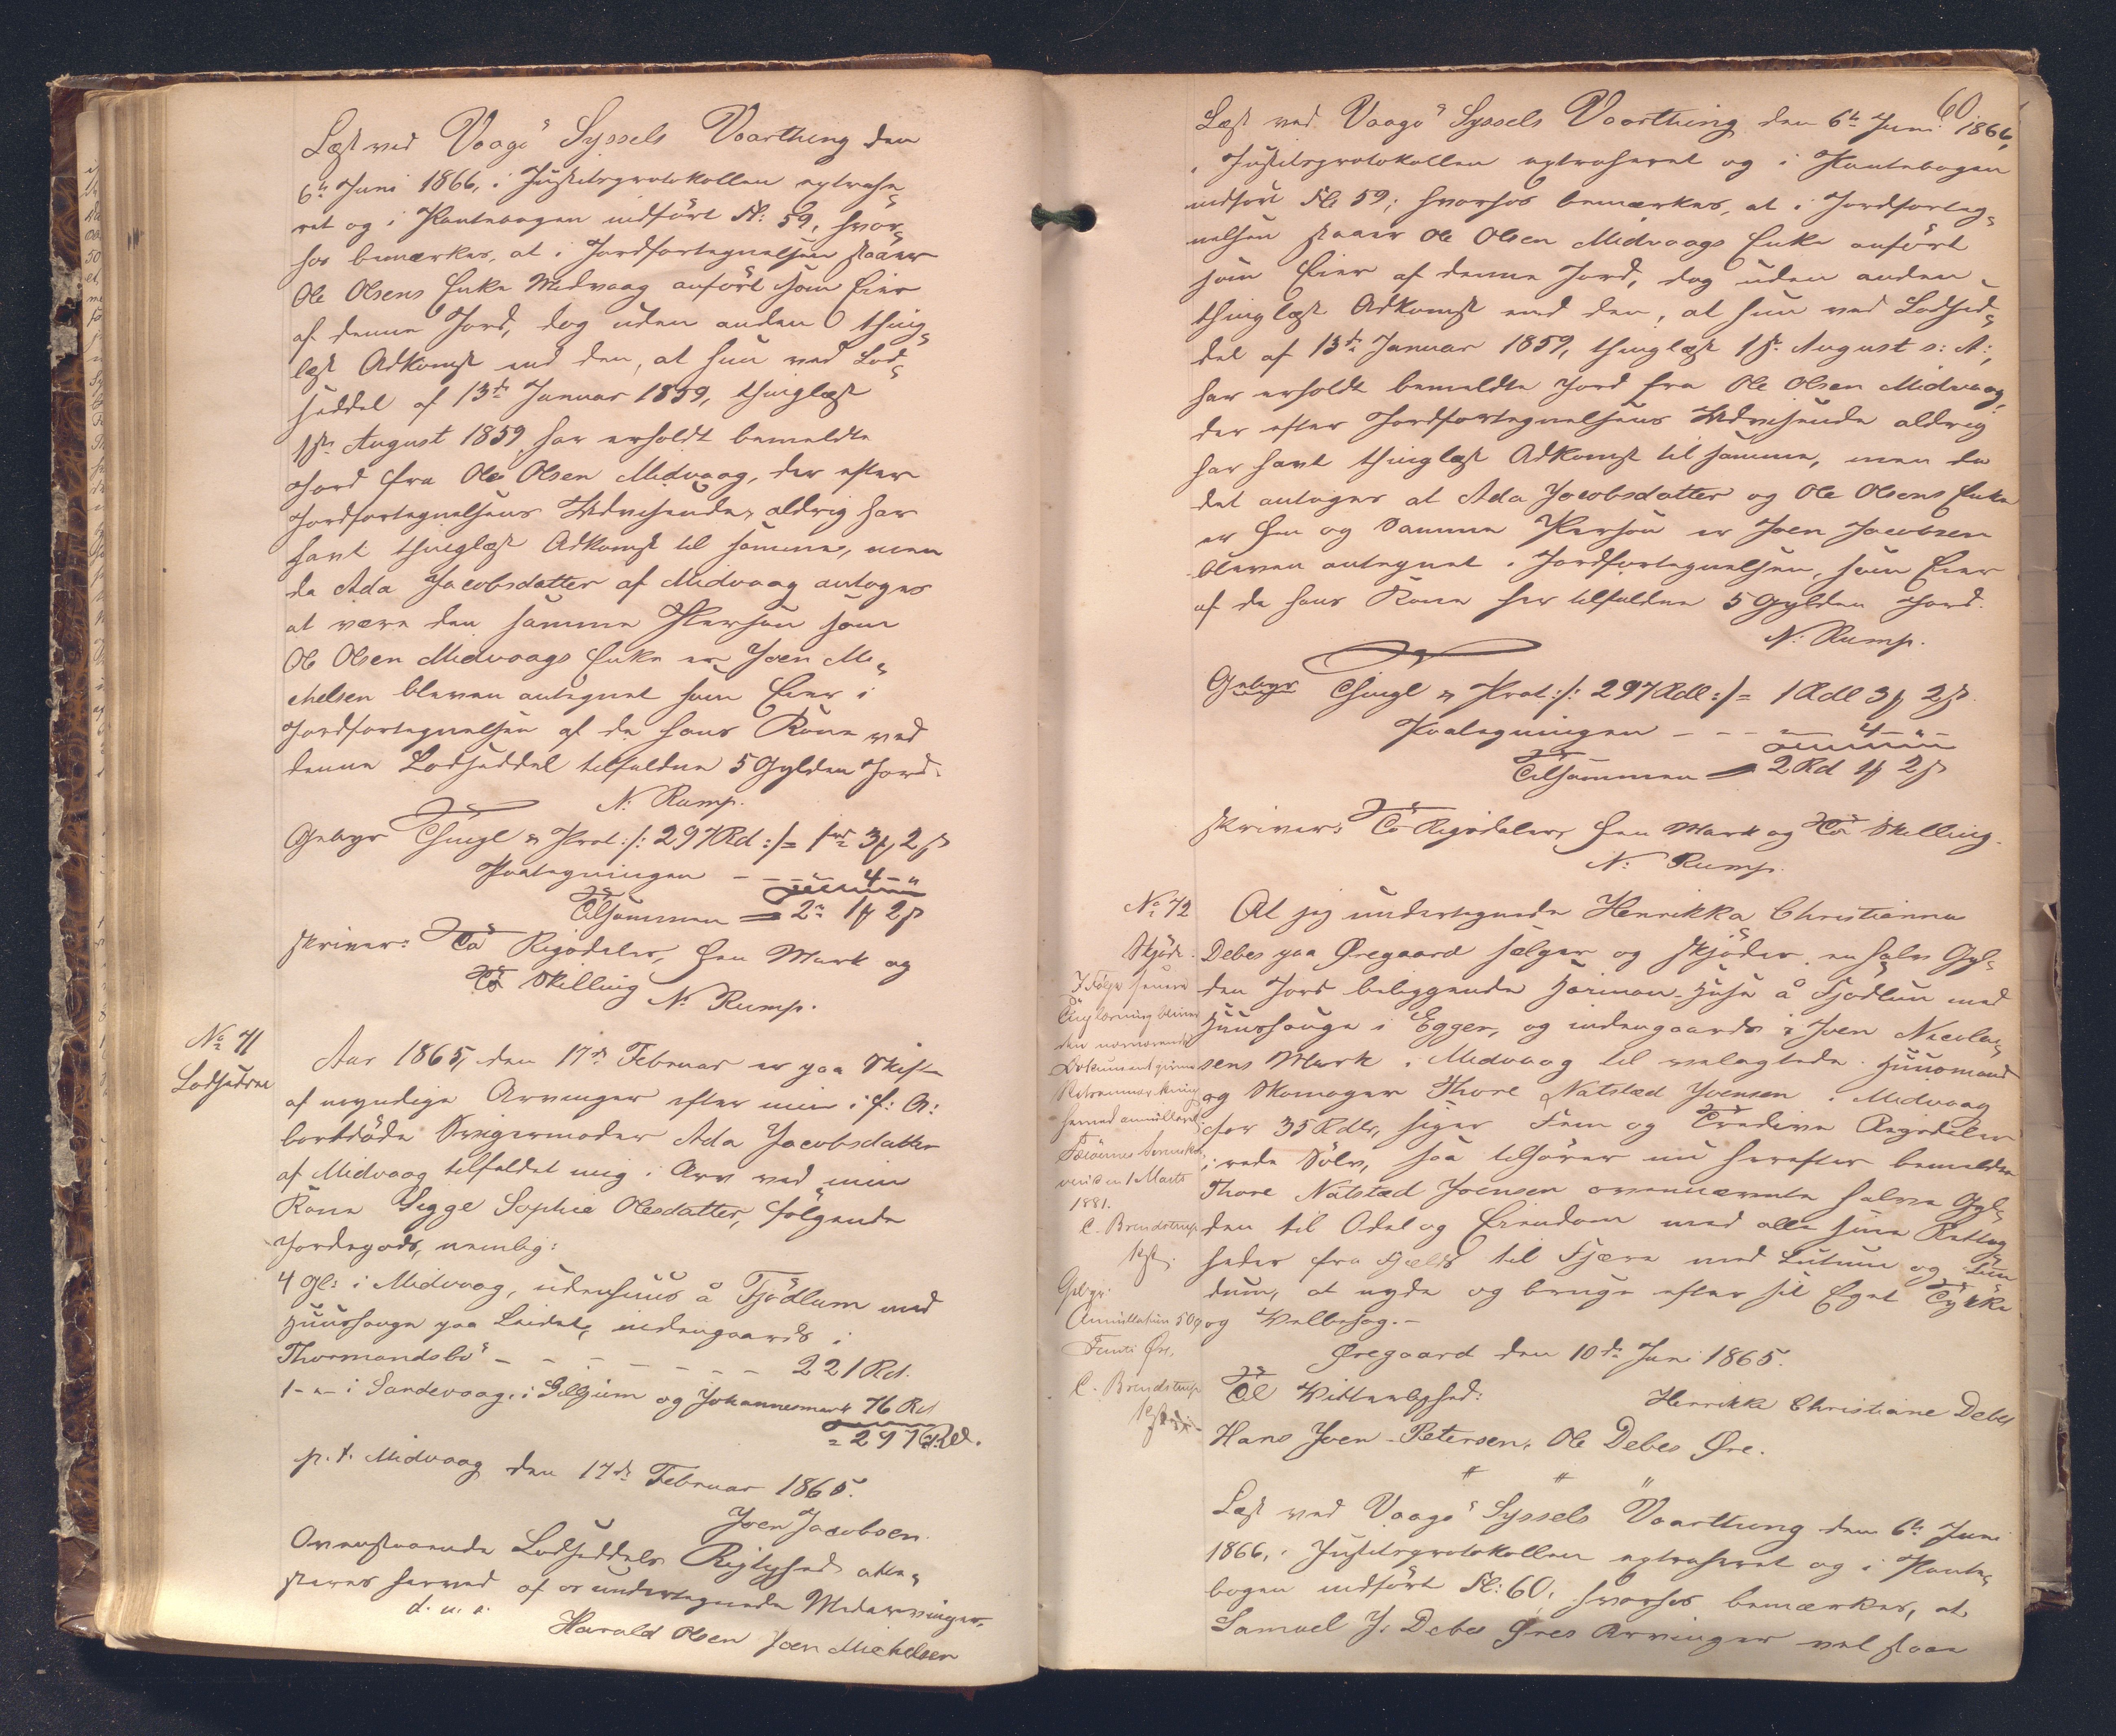 Læst ved Vaagø Syssels Vaarthing den
6te Juni 1866, i Justitsprotokollen extrahe-
ret og i Pantebogen indført Fl: 59, hvor-
hos bemærkes, at i Jordfortegnelsen staaer
Ole Olsens Enke Midvaag anført som Eier
af denne Jord, dog uden anden thing-
læst Adkomst end den, at hun ved Lod-
seddel af 13de Januar 1859, thinglæst
1ste August 1859 har erholdt bemeldte
Jord fra Ole Olsen Midvaag, der efter
Jordfortegnelsens Udvisende, aldrig har
havt thinglæst Adkomst til samme, men
da Ada Jacobsdatter af Midvaag antages
at være den samme Person som
Ole Olsen Midvaags Enke er Joen Mi-
chelsen bleven antegnet som Eier i
Jordfortegnelsen af de hans Kone ved
denne Lodseddel tilfaldne 5 Gylden Jord.
N: Rump.
Gebyr Thingl & Prot :/: 297 Rd :/= 1rd 3 2
Paategningen - - - 4 - "
Tilsammen = 2rd 1 2
skriver: To Rigsdaler, Een Mark og
To Skilling N: Rump.
No 71
Lodseddel
Aar 1865, den 17de Februar er paa Skifte
af myndige Arvinger efter min i f: A:
bortdøde Svigermoder Ada Jacobsdatter
af Midvaag tilfaldet mig i Arv ved min
Kone Sigge Sophie Olesdatter, følgende
Jordegods, nemlig:
4 Gl: i Midvaag, udenhuus å Tjødlum med
Huushauge paa Leidet, indengaards i
Thormandsbø - - - - - - - 221 Rd.
1 - " - i Sandevaag, i Giljum og Johannesmark 76 Rd
= 297 Rd.
p. t. Midvaag den 17de Februar 1865.
Joen Jacobsen.
Ovenstaaende Lodseddels Rigtighed atte-
steres herved af os undertegnede Medarvinger.
d. u. s.
Harald Olsen Joen Michelsen
60
Læst ved Vaagø Syssels Vaarthing den 6te Juni 1866,
i Justitsprotokollen extraheret og i Pantebogen
indført Fl: 59; hvorhos bemærkes, at i Jordforteg-
nelsen staaer Ole Olsen Midvaags Enke anført
som Eier af denne Jord, dog uden anden
thinglæst Adkomst end den, at hun ved Lodsed-
del af 13de Januar 1859, thinglæst 1ste August s: A:,
har erholdt bemeldte Jord fra Ole Olsen Midvaag,
der efter Jordfortegnelsens Udvisende aldrig
har havt thinglæst Adkomst til samme, men da
det antages at Ada Jacobsdatter og Ole Olsens Enke
er Een og Samme Person er Joen Jacobsen
bleven antegnet i Jordfortegnelsen, som Eier
af de hans Kone her tilfaldne 5 Gylden Jord.
N: Rump.
Gebyr Thingl & Prot :/: 297 Rdl :/= 1 Rdl 3 2
Paategningen - - - 4 - " -
Tilsammen = 2 Rd 1 2
skriver: To Rigsdaler, Een Mark og To Skilling.
N: Rump.
No 72
Skjøde.
At jeg undertegnede Henrikka Christianna
Debes paa Øregaard sælger og skjøder en halv Gyl-
den Jord beliggende Heiman-Huse å Tjødlun med
Huushauge i Egger, og indengaards i Joen Nicola-
sens Mark i Midvaag til velagtede Huusmand
og Skomager Thore Natstæd Joensen i Midvaag
for 35 Rdlr, siger Fem og Tredive Rigsdaler
i rede Sølv, saa tilhører nu herefter bemeldte
Thore Natstæd Joensen ovennævnte halve Gyl-
den til Odel og Eiendom med alle sine Rettig-
heder fra Fjeld til Fjære med Luttum og Lun-
dum, at nyde og bruge efter sit Eget Tykke
og Velbehag. -
Øregaard den 10de Juni 1865.
Til Vitterlighed: Henrikke Christiane Debes
Hans Joen Petersen, Ole Debes Øre.
I Følge senere
Thinglæsning bliver
den nærværende
Dokument givne
Retsanmærkning
hermed annulleret.
Færøernes Sorenskri-
veri den 1 Marts
1881.
C. Brendstrup
kst.
Gebyr:
Annullation 50 Ø
Femti Øre.
C. Brendstrup
kst.
" " "
Læst ved Vaagø Syssels Vaarthing den 6te Juni
1866, i Justitsprotokollen extraheret og i Pante-
bogen indført Fl: 60, hvorhos bemærkes, at
Samuel J. Debes Øres Arvinger vel staae